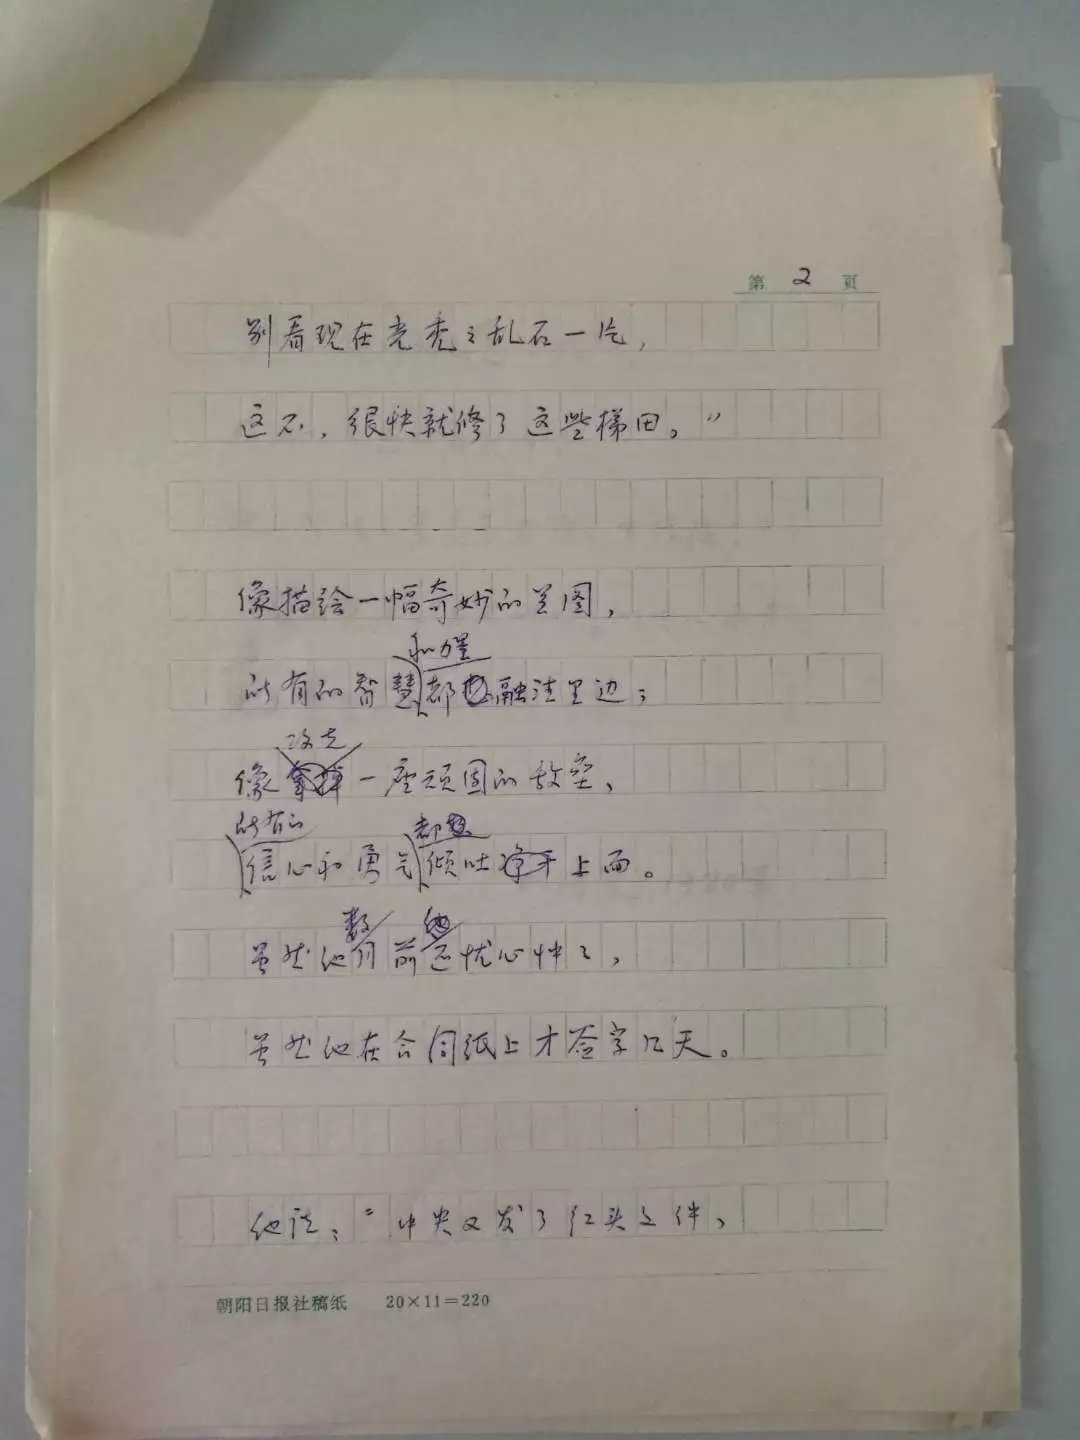 第 2 页
别看现在光秃々乱石一片，
这不，很快就修了这些梯田。”
像描绘一幅奇妙的美图，
和力量
所有的智慧都融注里边；
攻克
像拿掉一座顽固的敌垒，
所有的
都
信心和勇气倾吐净干上面。
数
虽然他月前还忧心忡々，
虽然他在合同纸上才签字几天。
他说：“中央又发了红头文件，
朝阳日报社稿纸 20×11=220